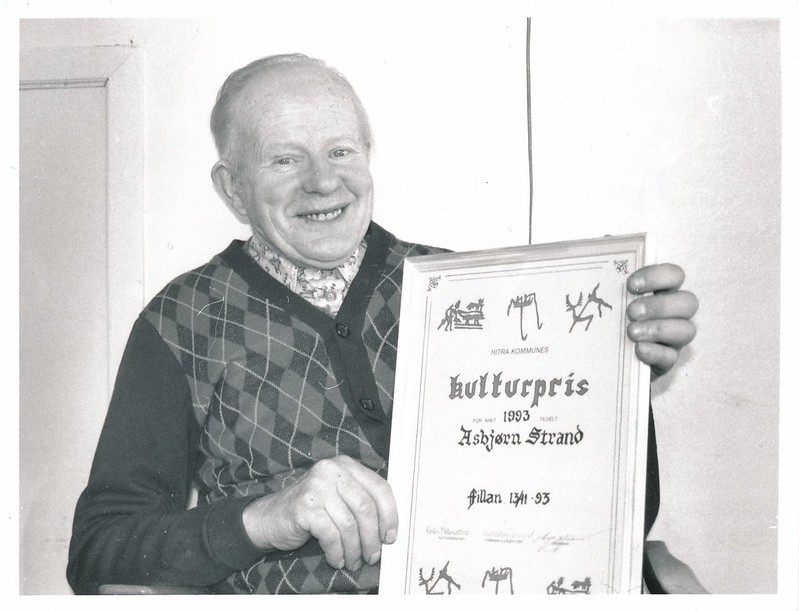 HITRA KOMMUNES
kulturpris
FOR ÅRET 1993 TILDELT
Asbjørn Strand
Fillan 13/11-93